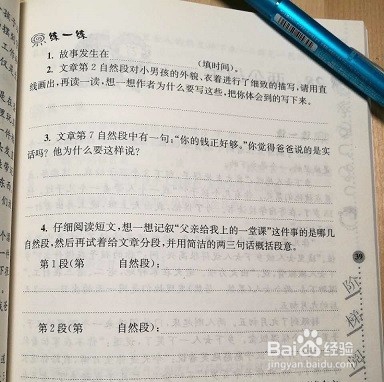 练一练
1. 故事发生在 (填时间)。
2. 文章第2自然段对小男孩的外貌、衣着进行了细致的描写,请用直
线画出,再读一读,想一想作者为什么要写这些,把你体会到的写下来。
3. 文章第7自然段中有一句:“你的钱正好够。”你觉得爸爸说的是实
话吗?他为什么要这样说?
4. 仔细阅读短文,想一想记叙“父亲给我上的一堂课”这件事的是哪几
自然段,然后再试着给文章分段,并用简洁的两三句话概括段意。
第1段(第 自然段):
第2段(第 自然段):
39
阶
Baidu经验
jingyan.baidu.com